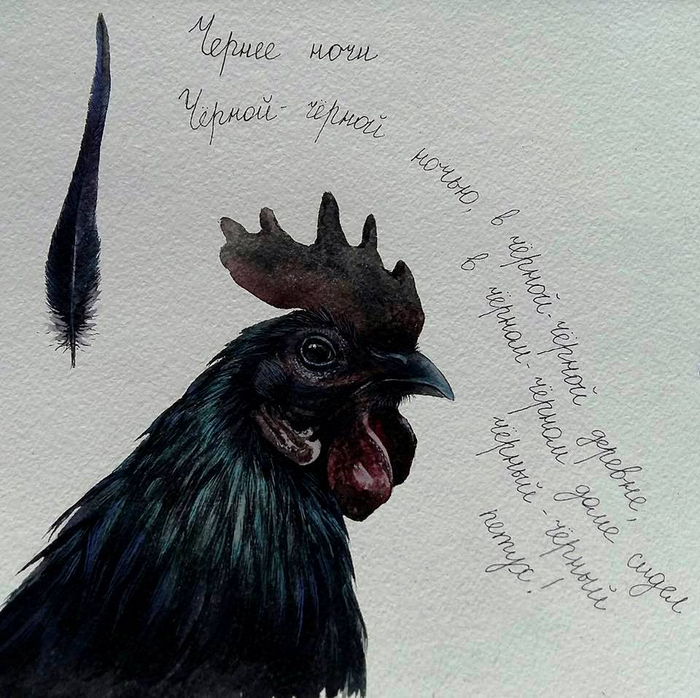 Чернее ночи
Чёрной-чёрной ночью, в чёрной-чёрной деревне,
в чёрном-чёрном доме сидел
чёрный-чёрный
петух!